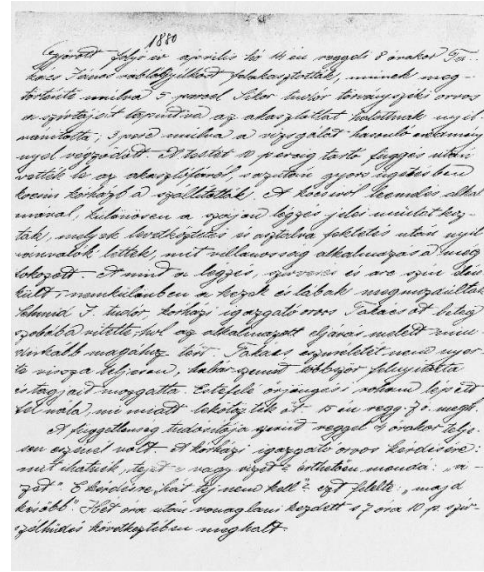 1880
Győrött folyó év április hó 14 én reggeli 8 órakor Ta-
kács János rablógyilkost felakasztották, minek meg-
történte múlva 5 perccel tudor törvényszéki orvos
a szivtájat tapintva az akasztottat halottnak nyil-
vánította, 3 perc múlva a vizsgálat hasonló eredmény
nyel végződött. A testet 10 percig tartó függés után
vették le az akasztófáról, s azután gyors ügetésben
kocsin kórházba szállították. A kocsiról leemelés alkal
mával, különösen a száján légzés jelei mutatkoz-
tak, melyek levetkőztetés és asztalra fektetés után nyil
vánvalók lettek, mit villanyosság alkalmazása még
fokozott. A mint a légzés, és arc szín élén
kült, nemkülönben a kezek és lábak megmozdultak
Schmid J. tudor, kórházi igazgató orvos Takácsot beteg
szobába vitette, hol az alkalmazott eljárás mellett mind
inkább magához tért. Takács eszméletét nem nyer-
te vissza teljesen, habár szemeit többször felnyitotta
és tagjait mozgatta. Estefelé őrjöngési roham lépett
fel nála, mi miatt lekötözték őt. 15 én regg. 7 ó. megh.
A függetlenség tudósítója szerint reggel 4 órakor telje-
sen eszmél volt. A kórházi igazgató orvos kérdésére:
mit ihatnék, tejet e vagy vizet e érthetően mondá: „vi-
zet". E kérdésre „hát tej nem kell"? ezt felelte: „majd
később". Két óra után vonaglani kezdett s 7 óra 10 p. szív-
szélhüdés következtében meghalt.